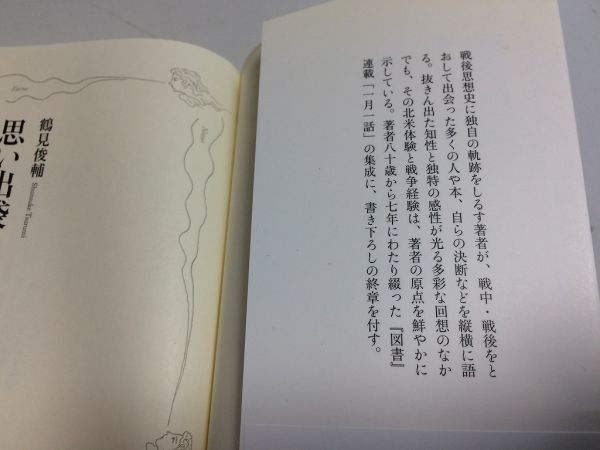 戦後思想史に独自の軌跡をしるす著者が、戦中・戦後をと
おして出会った多くの人や本、自らの決断などを縦横に語
る。抜きん出た知性と独特の感性が光る多彩な回想のなか
でも、その北米体験と戦争経験は、著者の原点を鮮やかに
示している。著者八十歳から七年にわたり綴った『図書』
連載「一月一話」の集成に、書き下ろしの終章を付す。
鶴見俊輔
Shunsuke Tsurumi
思い出袋